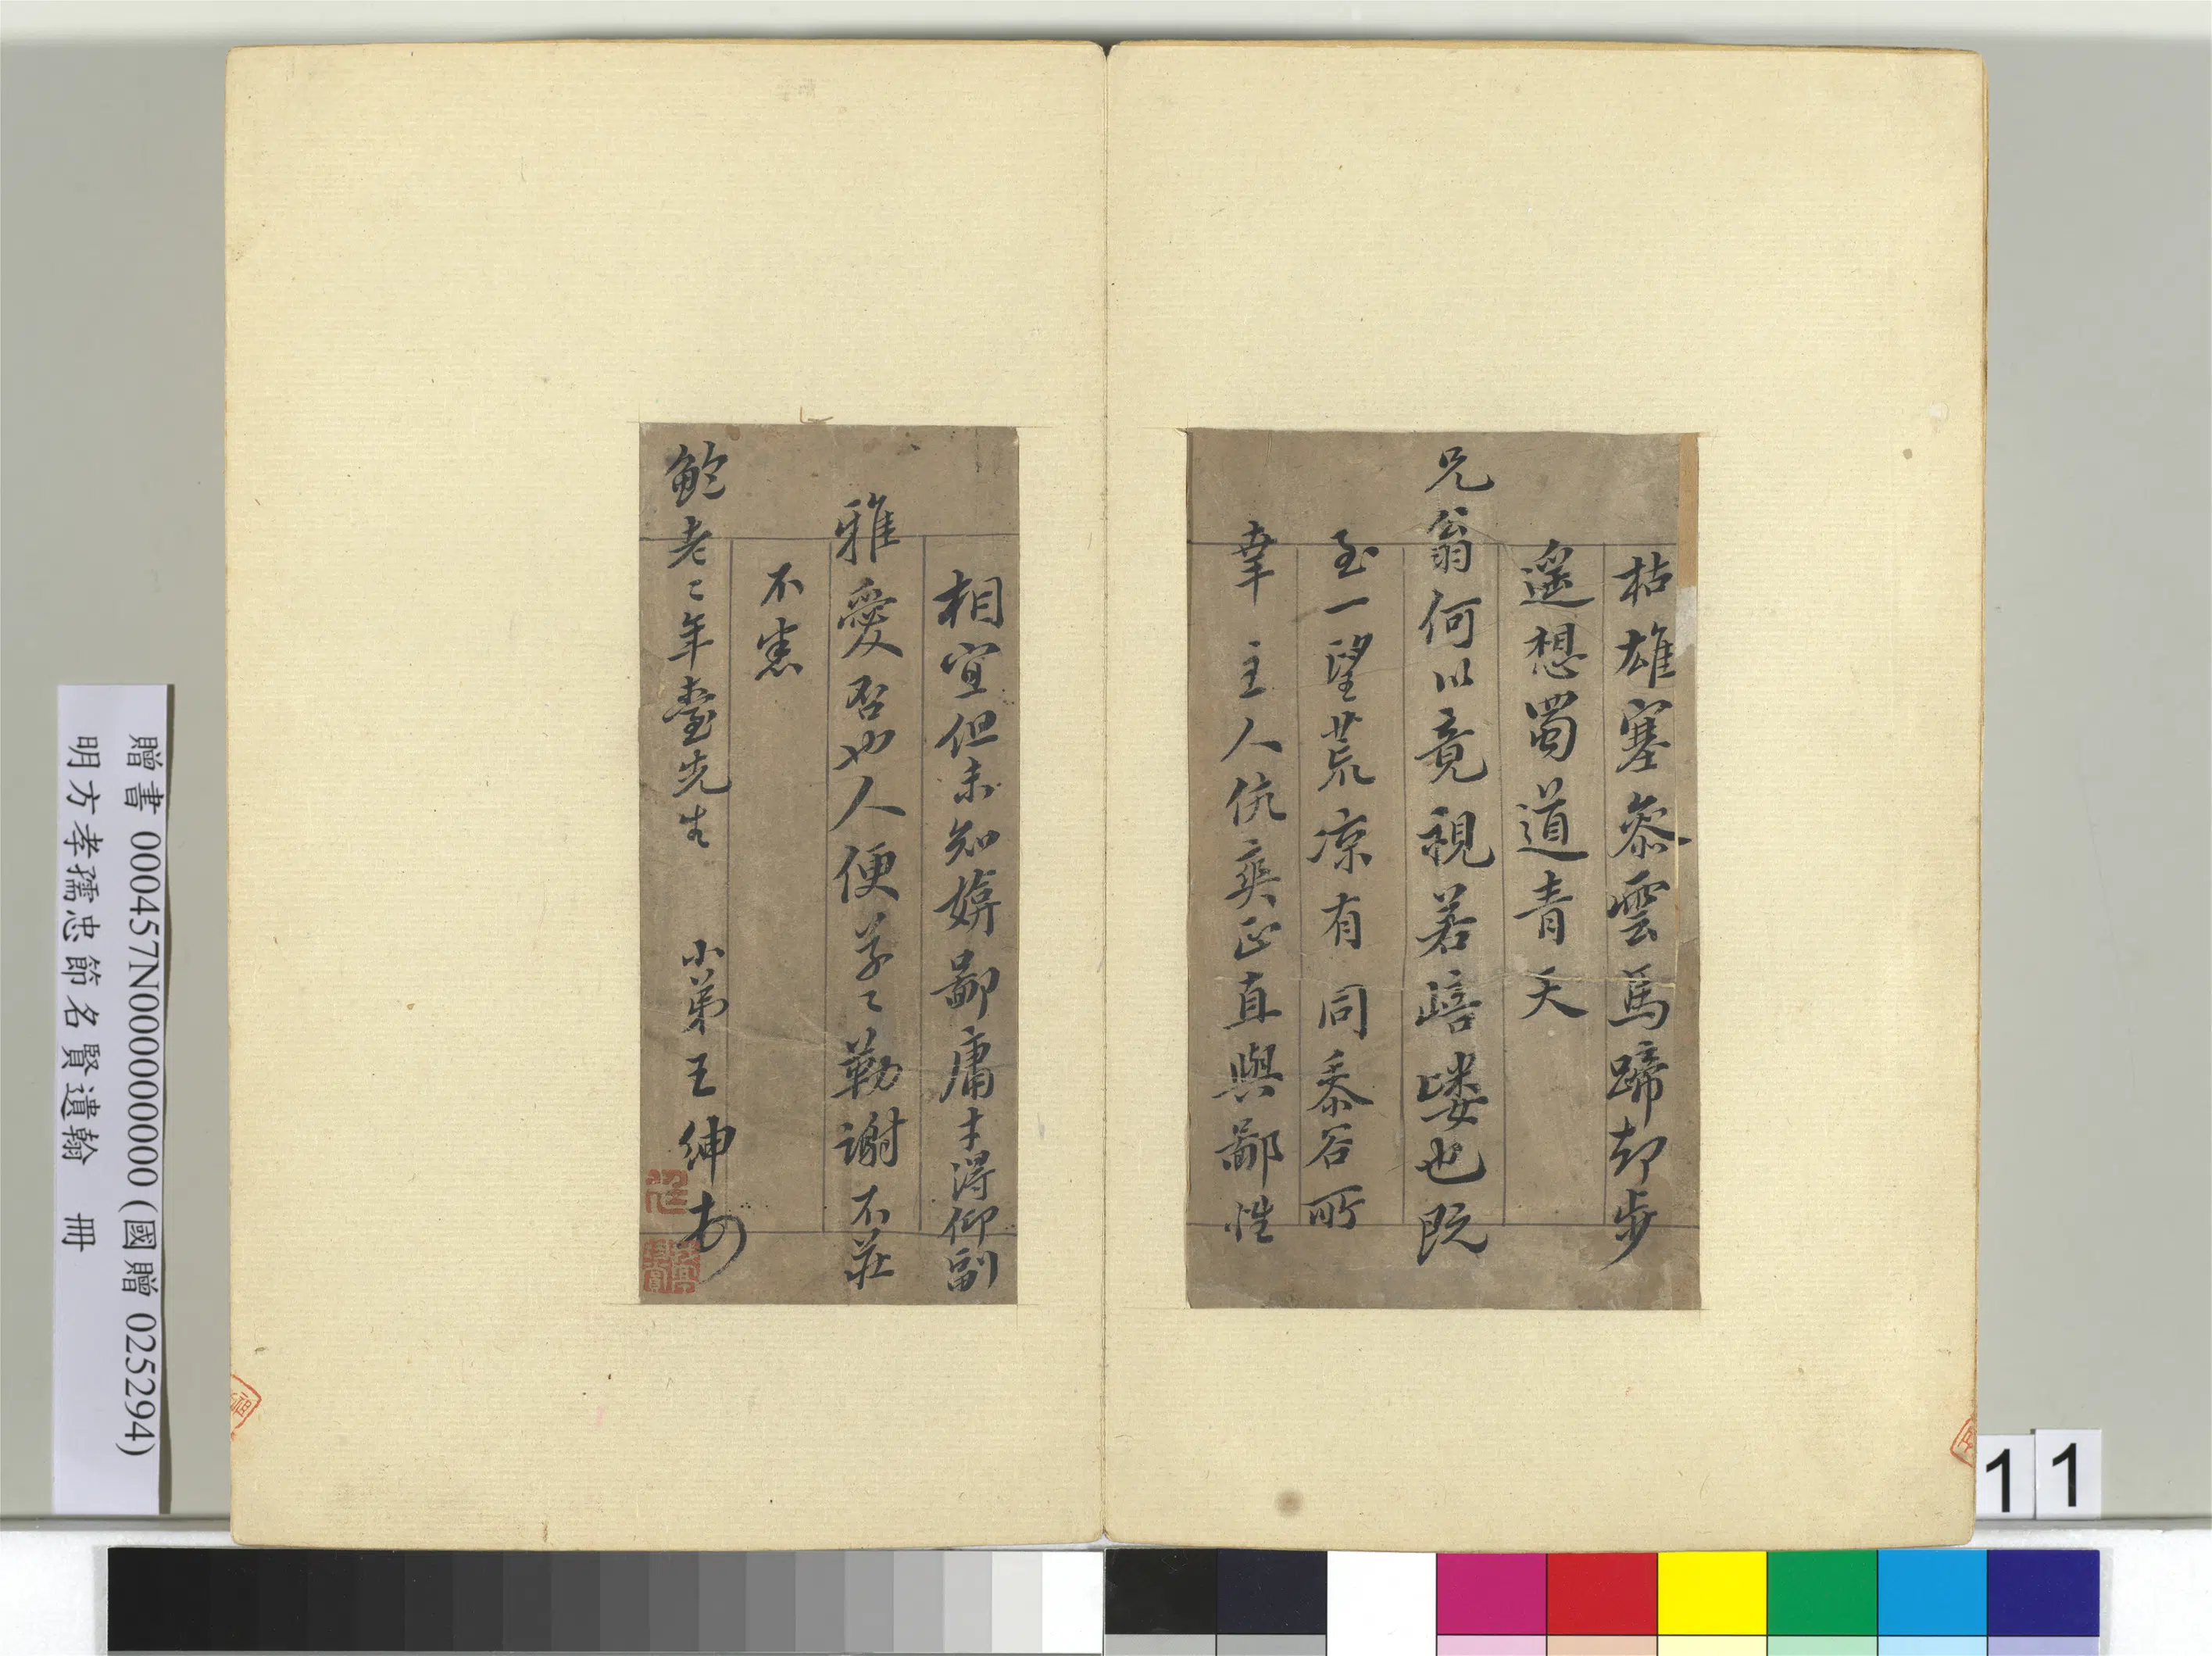 枯雄塞參雲馬蹄却步
遥想蜀道青天
兄翁何以竟視若嵱嶁也既
至一望荒涼有同黍谷所
幸 主人伉爽正直與鄙性
相宜但未知嫞鄙庸才得仰副
雅愛否也人便草〻勒謝不莊
不宻
鮑老〻年臺先生 小弟王紳
贈書 000457N000000000 (國贈 025294)
明方孝孺忠節名賢遺翰 冊
11